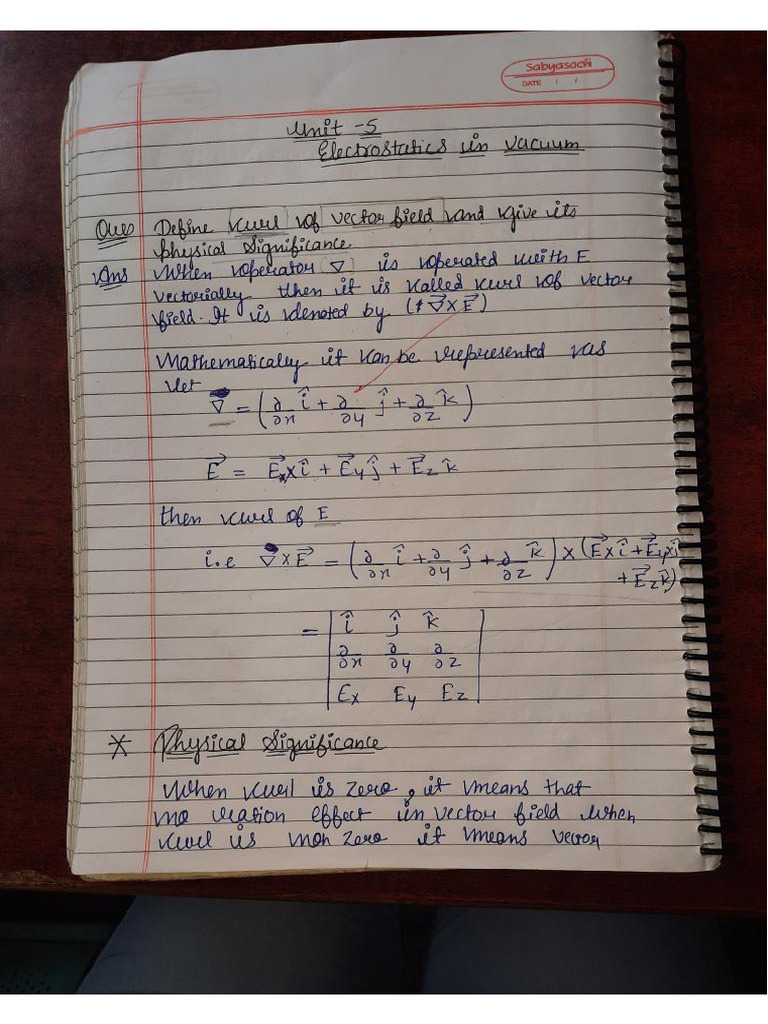 Sabyasachi
DATE / /
Unit -5
Electrostatics in vacuum
Ques Define curl of vector field and give its
physical significance
Ans When operator ∇ is operated with E
vectorially then it is called curl of vector
field. It is denoted by (∇⃗×E⃗)
Mathematically it can be represented as
let
∇⃗ = (∂/∂x î + ∂/∂y ĵ + ∂/∂z k̂)
E⃗ = E⃗x î + E⃗y ĵ + E⃗z k̂
then curl of E
i.e ∇⃗×E⃗ = (∂/∂x î + ∂/∂y ĵ + ∂/∂z k̂) × (E⃗x î + E⃗y ĵ
+ E⃗z k̂)
= | î ĵ k̂ |
∂/∂x ∂/∂y ∂/∂z
Ex Ey Ez
* Physical Significance
When curl is zero, it means that
no ration effect in vector field when
curl is non zero it means vector